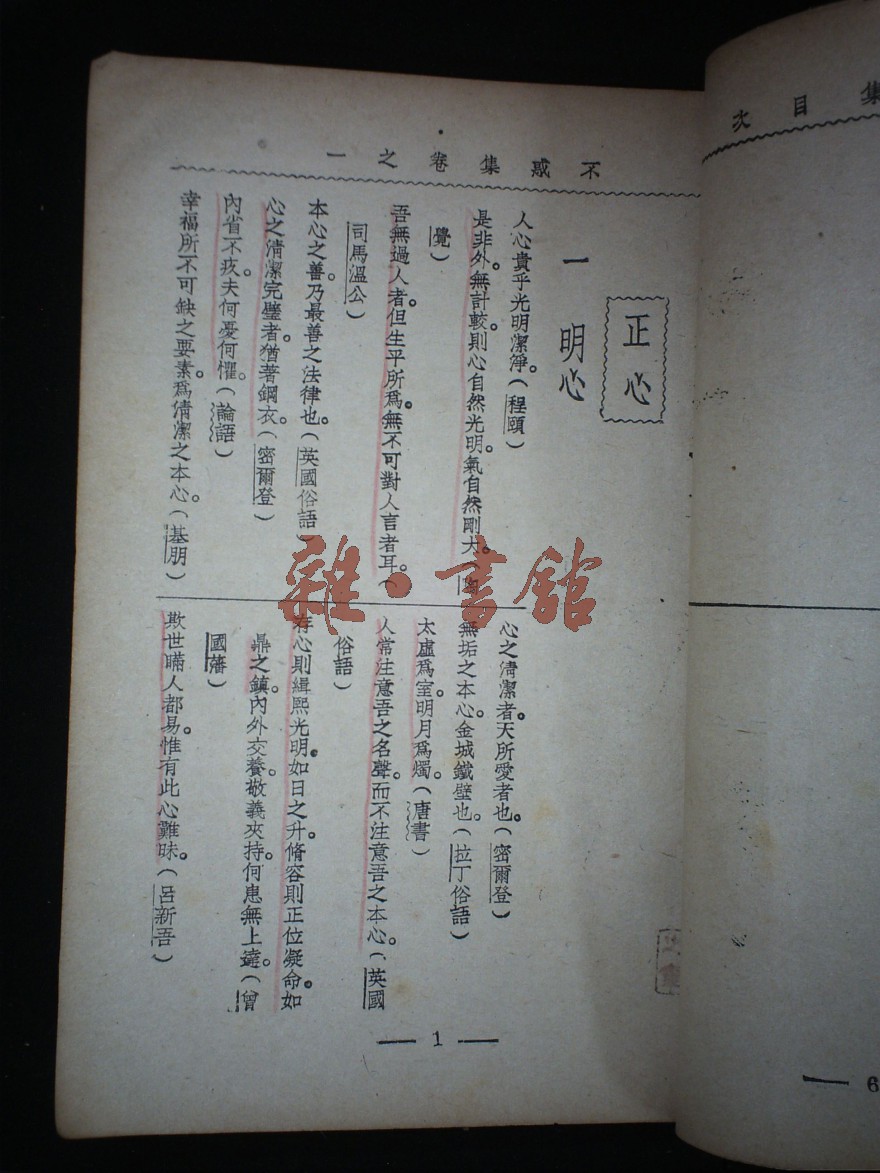 集目次
不惑集卷之一
正心
一 明心
人心貴乎光明潔淨。(程頤)
是非外。無計較則心自然光明。氣自然剛大。(
覺)
吾無過人者。但生平所爲。無不可對人言者耳。(
司馬溫公)
本心之善。乃最善之法律也。(英國俗語)
心之清潔完璧者。猶著鋼衣。(密爾登)
內省不疚。夫何憂何懼。(論語)
幸福所不可缺之要素。爲清潔之本心。(基朋)
心之清潔者。天所愛者也。(密爾登)
無垢之本心。金城鐵壁也。(拉丁俗語)
太虛爲室。明月爲燭。(唐書)
人常注意吾之名聲。而不注意吾之本心。(英國
俗語)
存心則緝熙光明。如日之升。脩容則正位凝命。如
鼎之鎮。內外交養。敬義夾持。何患無上達。(曾
國藩)
欺世瞞人都易。惟有此心難昧。(呂新吾)
— 1 —
— 6
雜·書館